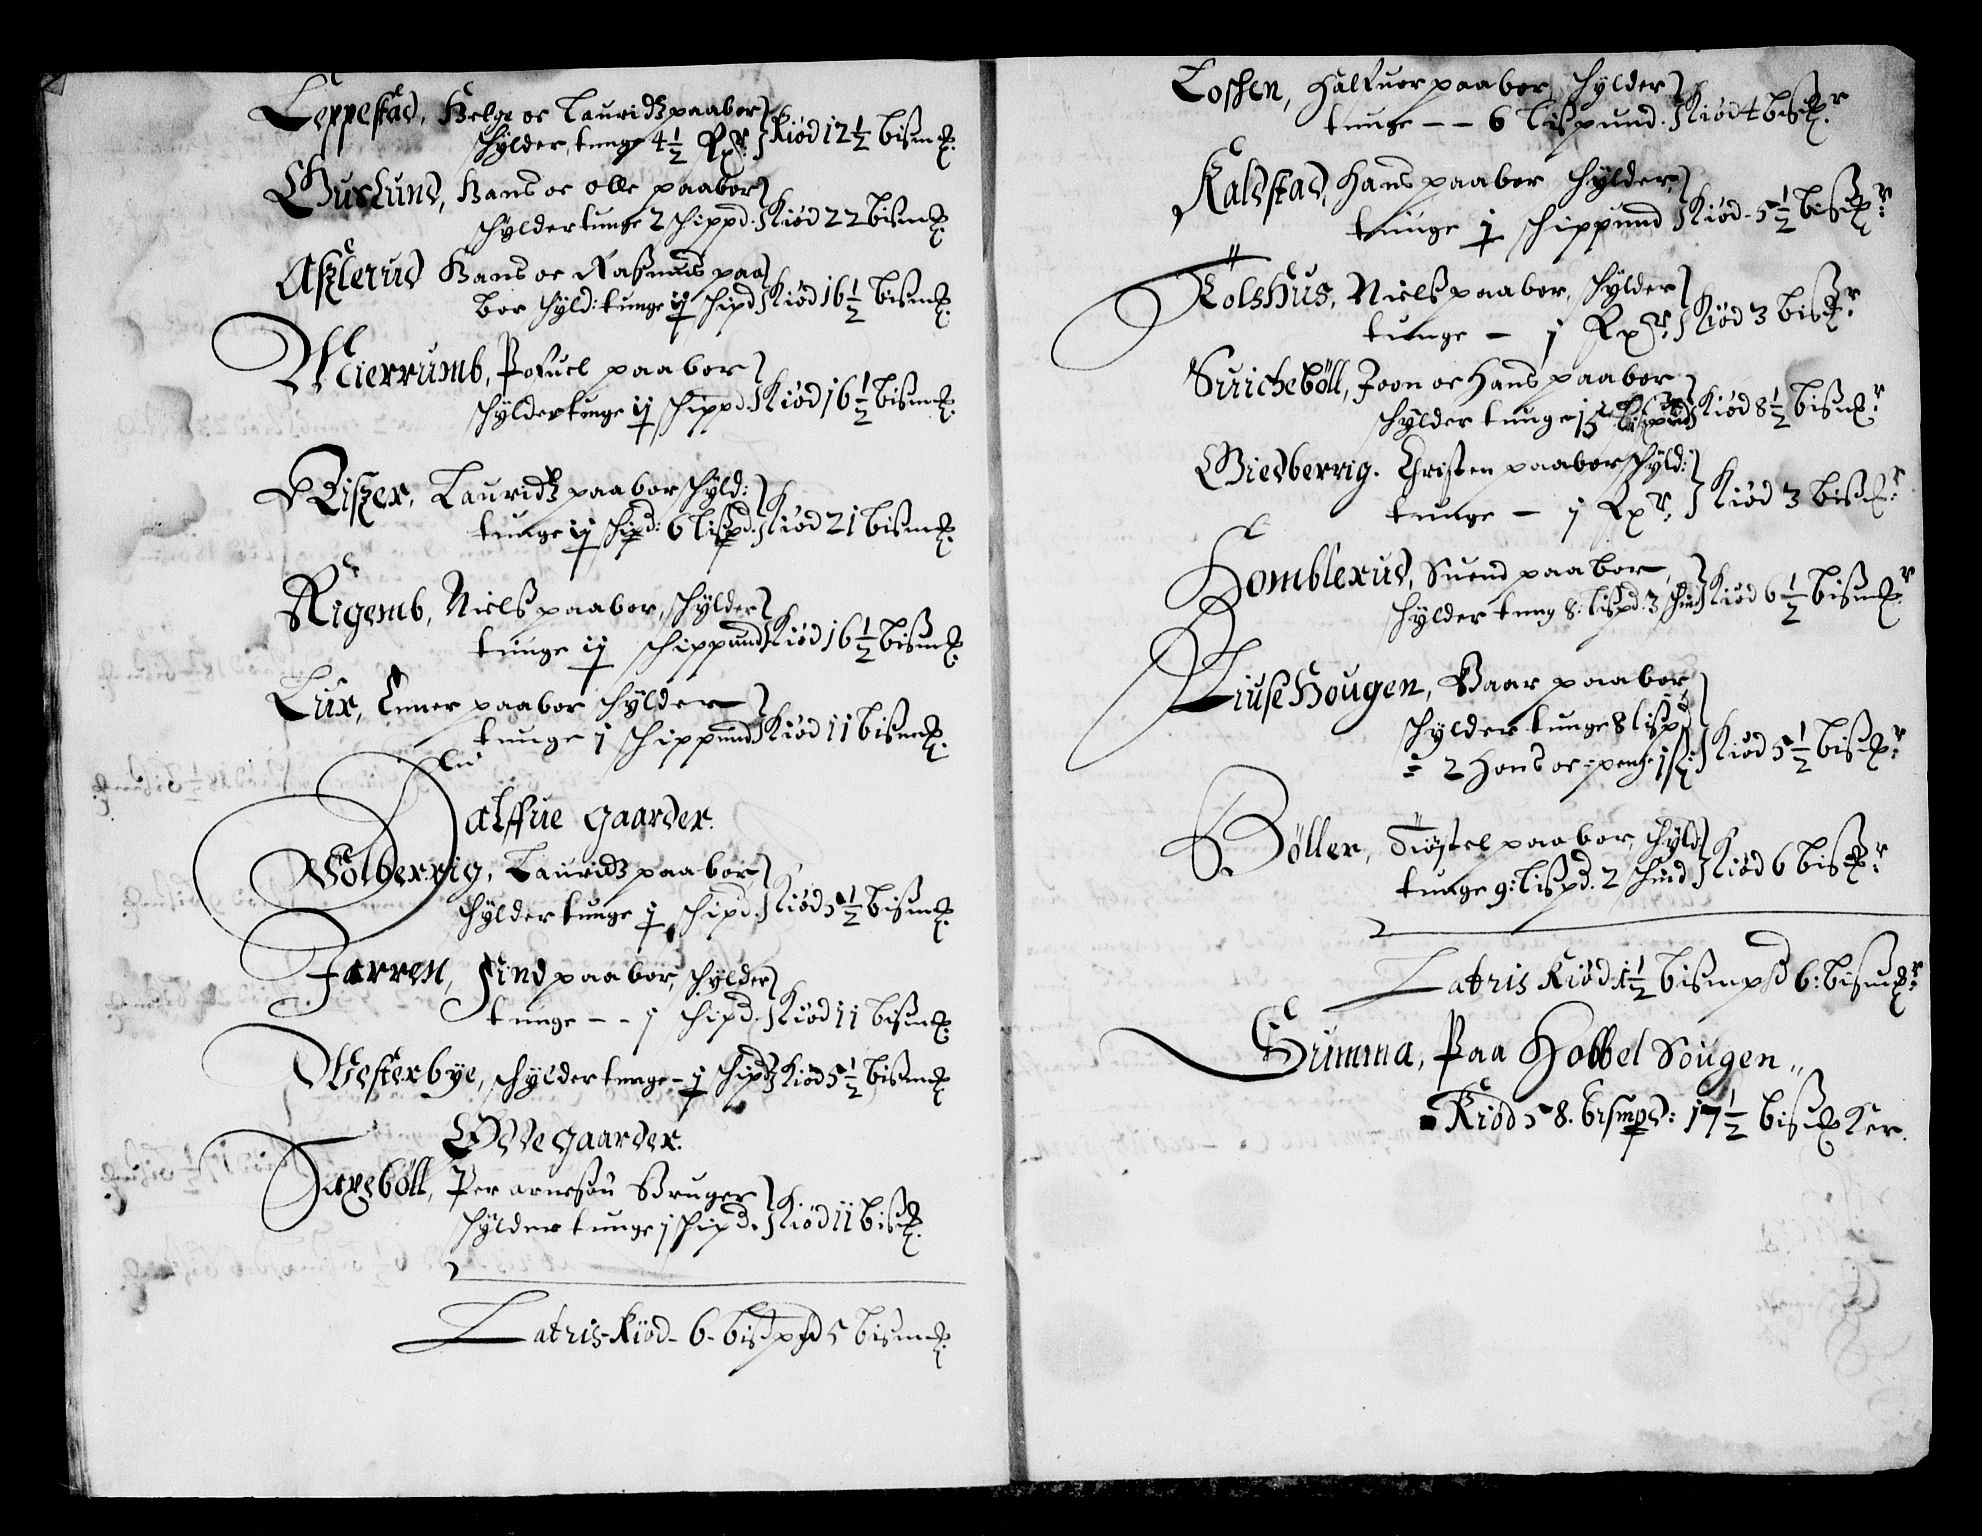 Leppestad, Helge oc Lauridz paaboer
schylder, tunge 4½ Rxr: Kiød 12½ bismꝶ:
Huslund, Hans oc Olle paaboer
schylder tunge 2 schippd: Kiød 22 bismꝶ:
Aszlerud Hans oc Rasmus paa
boer schyld: tunge ij schipd Kiød 16½ bismꝶ:
Meierrumb, Pofuel paaboer
schylder tunge ij schippd: Kiød 16½ bismꝶ:
Riszer, Lauridz paaboer schyld:
tunge ij schipd: 6 lispd: Kiød 21 bismꝶ:
Rigemb, Nielsz paaboer, schylder
tunge ij schippund Kiød 16½ bismꝶ:
Lux, Enner paaboer schylder
tunge j schippund Kiød 11 bismꝶ:
Halffue gaarder.
Wolberrig, Lauridz paaboer
schylder tunge j schipd: Kiød 5½ bismꝶ:
Jarren, Find paaboer, schylder
tunge - - j schipd: Kiød 11 bismꝶ:
Westerbye, schylder tunge - j schipd Kiød 5½ bismꝶ:
Øde gaarder.
Taxebøll, Per arnesøn Bruger
schylder tunge j schipd. Kiød 11 bismꝶ:
Latris Kiød - 6 - bispd 5 bismꝶ:
Loshen, Halfuor paaboer schylder
tunge - - 6 lispund. Kiød 4 bismꝶr:
Kaldstad, Hans paaboer schylder
tunge j schippund Kiød - 5½ bismꝶr:
Tolshus, Nielsz paaboer, schylder
tunge - j Rxr: Kiød 3 bismꝶr:
Suichebøll, Joon oc Hans paaboer
schylder tunge 15 lispund Kiød 8½ bismꝶr:
Giedberrig. Christen paaboer schyld:
tunge - j Rxr: Kiød 3 bismꝶr:
Homblerud, Suend paaboer,
schylder tung 8: lispd: 3 schind Kiød 6½ bismꝶr:
Liuse Hougen, Gaar paaboer
schylder tunge 8 lispd
2 Hons oc penge 1 sk: Kiød 5½ bismꝶr:
Bøller, Tiøstel paaboer, schyld:
tunge 9: lispd. 2 schind Kiød 6 bismꝶr:
Latris Kiød 1½ bismpd 6: bismꝶr:
Summa, Paa Hobbel Sougen
Kiød 58. bismpd: 17½ bismꝶ Ker.